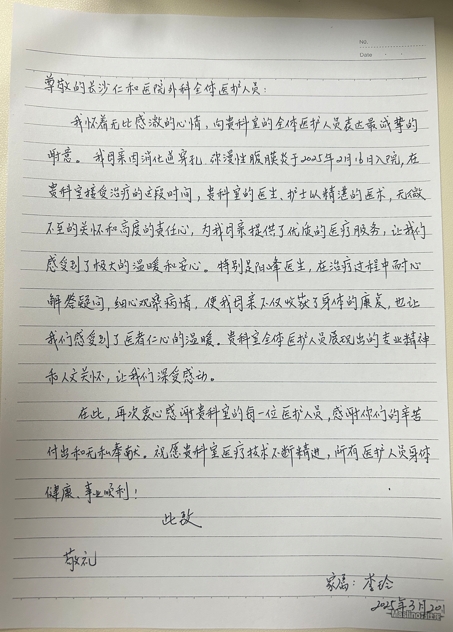 No.
Date
尊敬的长沙仁和医院外科全体医护人员:
我怀着无比感激的心情,向贵科室的全体医护人员表达最诚挚的
谢意。我母亲因消化道穿孔、弥漫性腹膜炎于2025年2月16日入院,在
贵科室接受治疗的这段时间,贵科室的医生、护士以精湛的医术,无微
不至的关怀和高度的责任心,为我母亲提供了优质的医疗服务,让我们
感受到了极大的温暖和安心。特别是阳峰医生,在治疗过程中耐心
解答疑问,细心观察病情,使我母亲不仅收获了身体的康复,也让
我们感受到了医者仁心的温暖。贵科室全体医护人员展现出的专业精神
和人文关怀,让我们深受感动。
在此,再次衷心感谢贵科室的每一位医护人员,感谢你们的辛苦
付出和无私奉献。祝愿贵科室医疗技术不断精进,所有医护人员身体
健康、事业顺利!
此致
敬礼
家属:李玲
2025年3月20